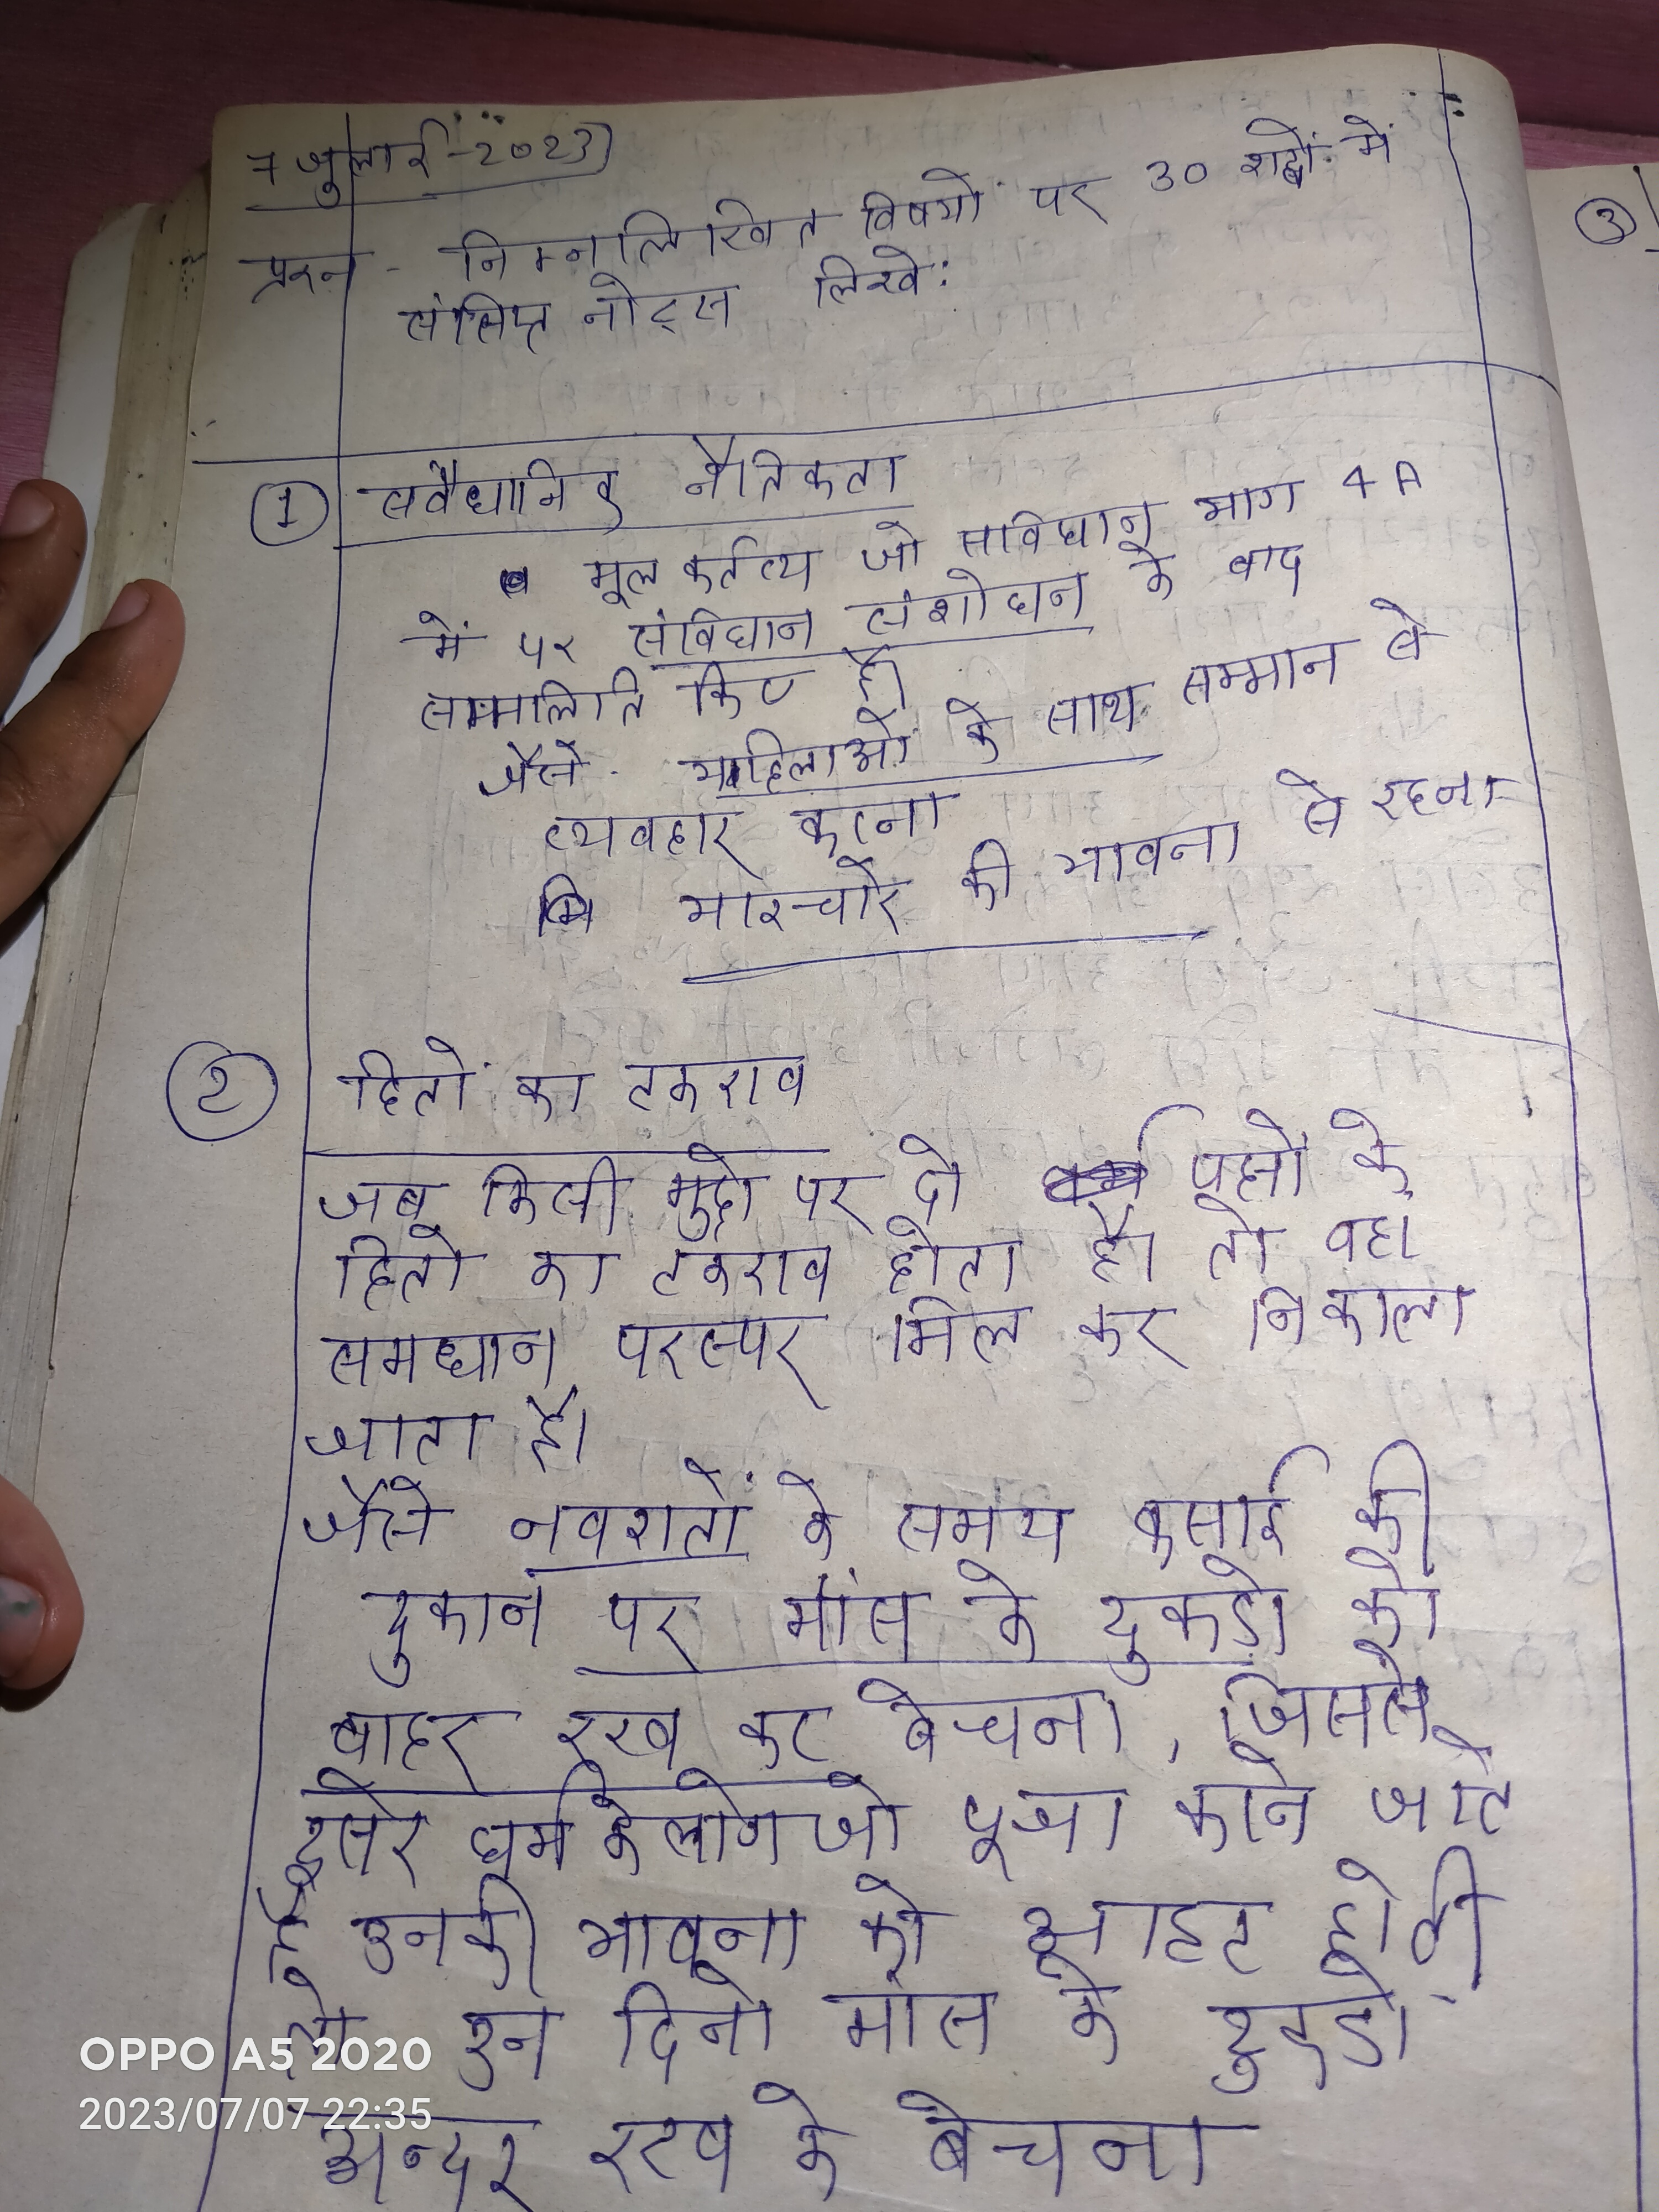 7 जुलाई-2023)
प्रश्न - निम्नलिखित विषयों पर 30 शब्दों में
संक्षिप्त नोट्स लिखे:
① सवैधानिक नैतिकता
मूल कर्तव्य जो सविधान भाग 4A
में पर संविधान संशोधन के बाद
किए है।
जैसे- महिलाओं के साथ सम्मान से
व्यवहार करना
भाईचारे की भावना से रहना
② हितों का टकराव
जब किसी मुद्दे पर दो पक्षों के
हितो का टकराव होता है। तो वहा
समधान परस्पर मिल कर निकाला
जाता है।
जैसे नवरातों के समय कसाई की
दुकान पर मांस के टुकडो को
बाहर रख कर बेचना, जिससे
दूसरे धर्म के लोग जो पूजा करने जाते
है उनकी भावना को आहट होती
तो उन दिनो मांस के टुकडो
अन्दर रख के बेचना
③
OPPO A5 2020
2023/07/07 22:35